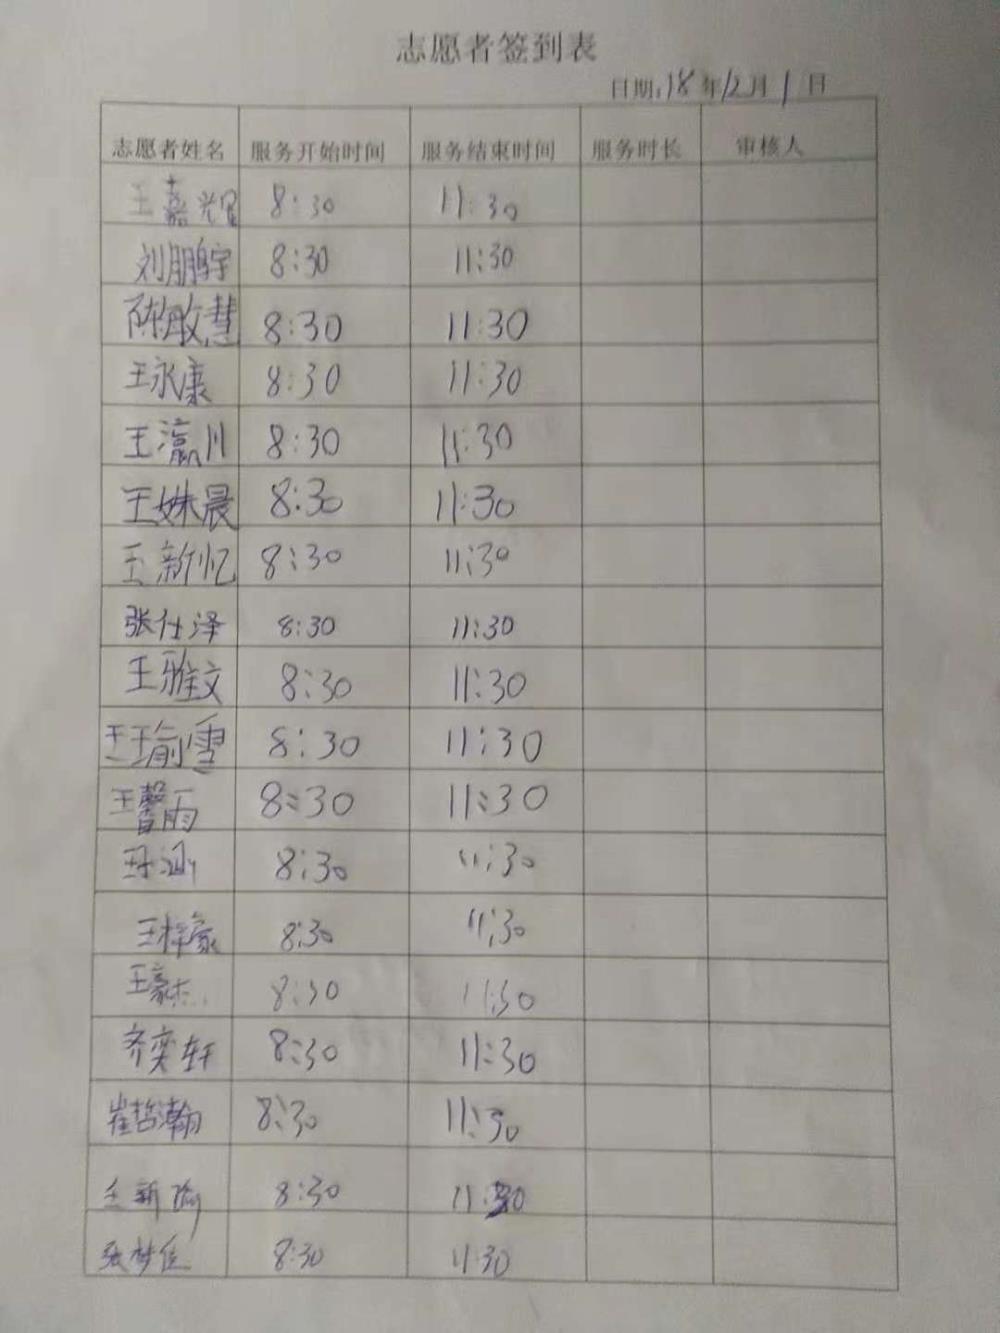 志愿者签到表
日期:18年12月1日
志愿者姓名 服务开始时间 服务结束时间 服务时长 审核人
王嘉耀 8:30 11:30
刘鹏宇 8:30 11:30
陈敢慧 8:30 11:30
王永康 8:30 11:30
王瀛川 8:30 11:30
王姝晨 8:30 11:30
王新忆 8:30 11:30
张仕泽 8:30 11:30
王雅文 8:30 11:30
王瑜雪 8:30 11:30
王馨雨 8:30 11:30
8:30 11:30
王梓豪 8:30 11:30
王豪杰 8:30 11:30
齐奕轩 8:30 11:30
崔哲瀚 8:30 11:30
王新瑜 8:30 11:30
张梦 8:30 11:30